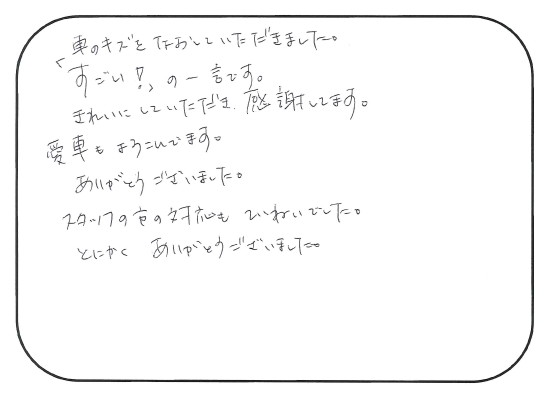 車のキズをなおしていただきました。
「すごい!」の一言です。
きれいにしていただき、感謝してます。
愛車もよろこんでます。
ありがとうございました。
スタッフの方の対応もていねいでした。
とにかく ありがとうございました。